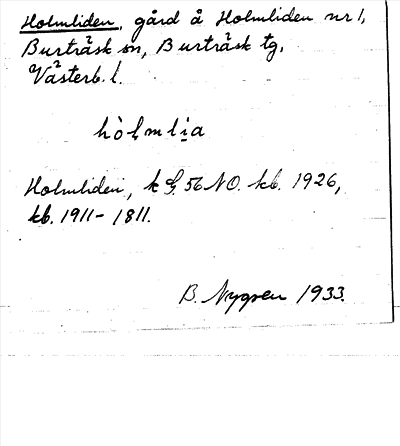 Holmliden, gård å Holmliden nr 1,
Burträsk sn, Burträsk tg.
Västerb. l.
hòḷmlịa
Holmliden, k G. 56 NO. kb. 1926,
kb. 1911-1811.
B. Nygren 1933.